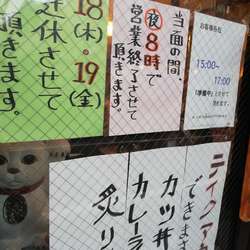 18(木)・19(金)
休させて
頂きます。
当面の間、
夜8時で
営業終了させて
頂きます。
お客様各位
15:00～
17:00
「準備中」とさせて
頂きます。
テイクア
できます
カツ丼
カレーラ
炙り